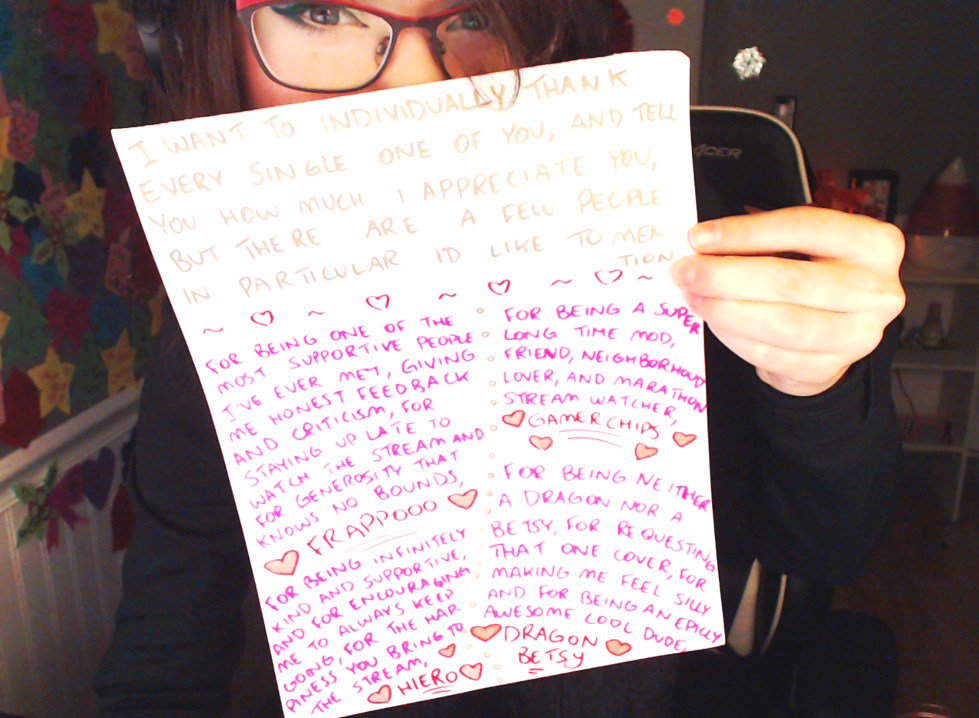 I WANT TO INDIVIDUALLY THANK
EVERY SINGLE ONE OF YOU, AND TELL
YOU HOW MUCH I APPRECIATE YOU,
BUT THERE ARE A FEW PEOPLE
IN PARTICULAR I'D LIKE TO MEN-
TION
~ ♡ ~ ♡ ~ ♡ ~ ♡ ~
FOR BEING ONE OF THE
MOST SUPPORTIVE PEOPLE
I'VE EVER MET, GIVING
ME HONEST FEEDBACK
AND CRITICISM, FOR
STAYING UP LATE TO
WATCH THE STREAM AND
FOR GENEROSITY THAT
KNOWS NO BOUNDS,
♡ FRAPPOOO ♡
FOR BEING INFINITELY
KIND AND SUPPORTIVE,
AND FOR ENCOURAGING
ME TO ALWAYS KEEP
GOING, FOR THE HAP-
PINESS YOU BRING TO
THE STREAM, ♡
♡ HIERO ♡
FOR BEING A SUPER
LONG TIME MOD,
FRIEND, NEIGHBORHOUD
LOVER, AND MARATHON
STREAM WATCHER,
♡ GAMERCHIPS ♡
♡ ♡
FOR BEING NEITHER
A DRAGON NOR A
BETSY, FOR REQUESTING
THAT ONE COVER, FOR
MAKING ME FEEL SILLY
AND FOR BEING AN EPICLY
AWESOME COOL DUDE,
♡ DRAGON ♡
BETSY
ACER